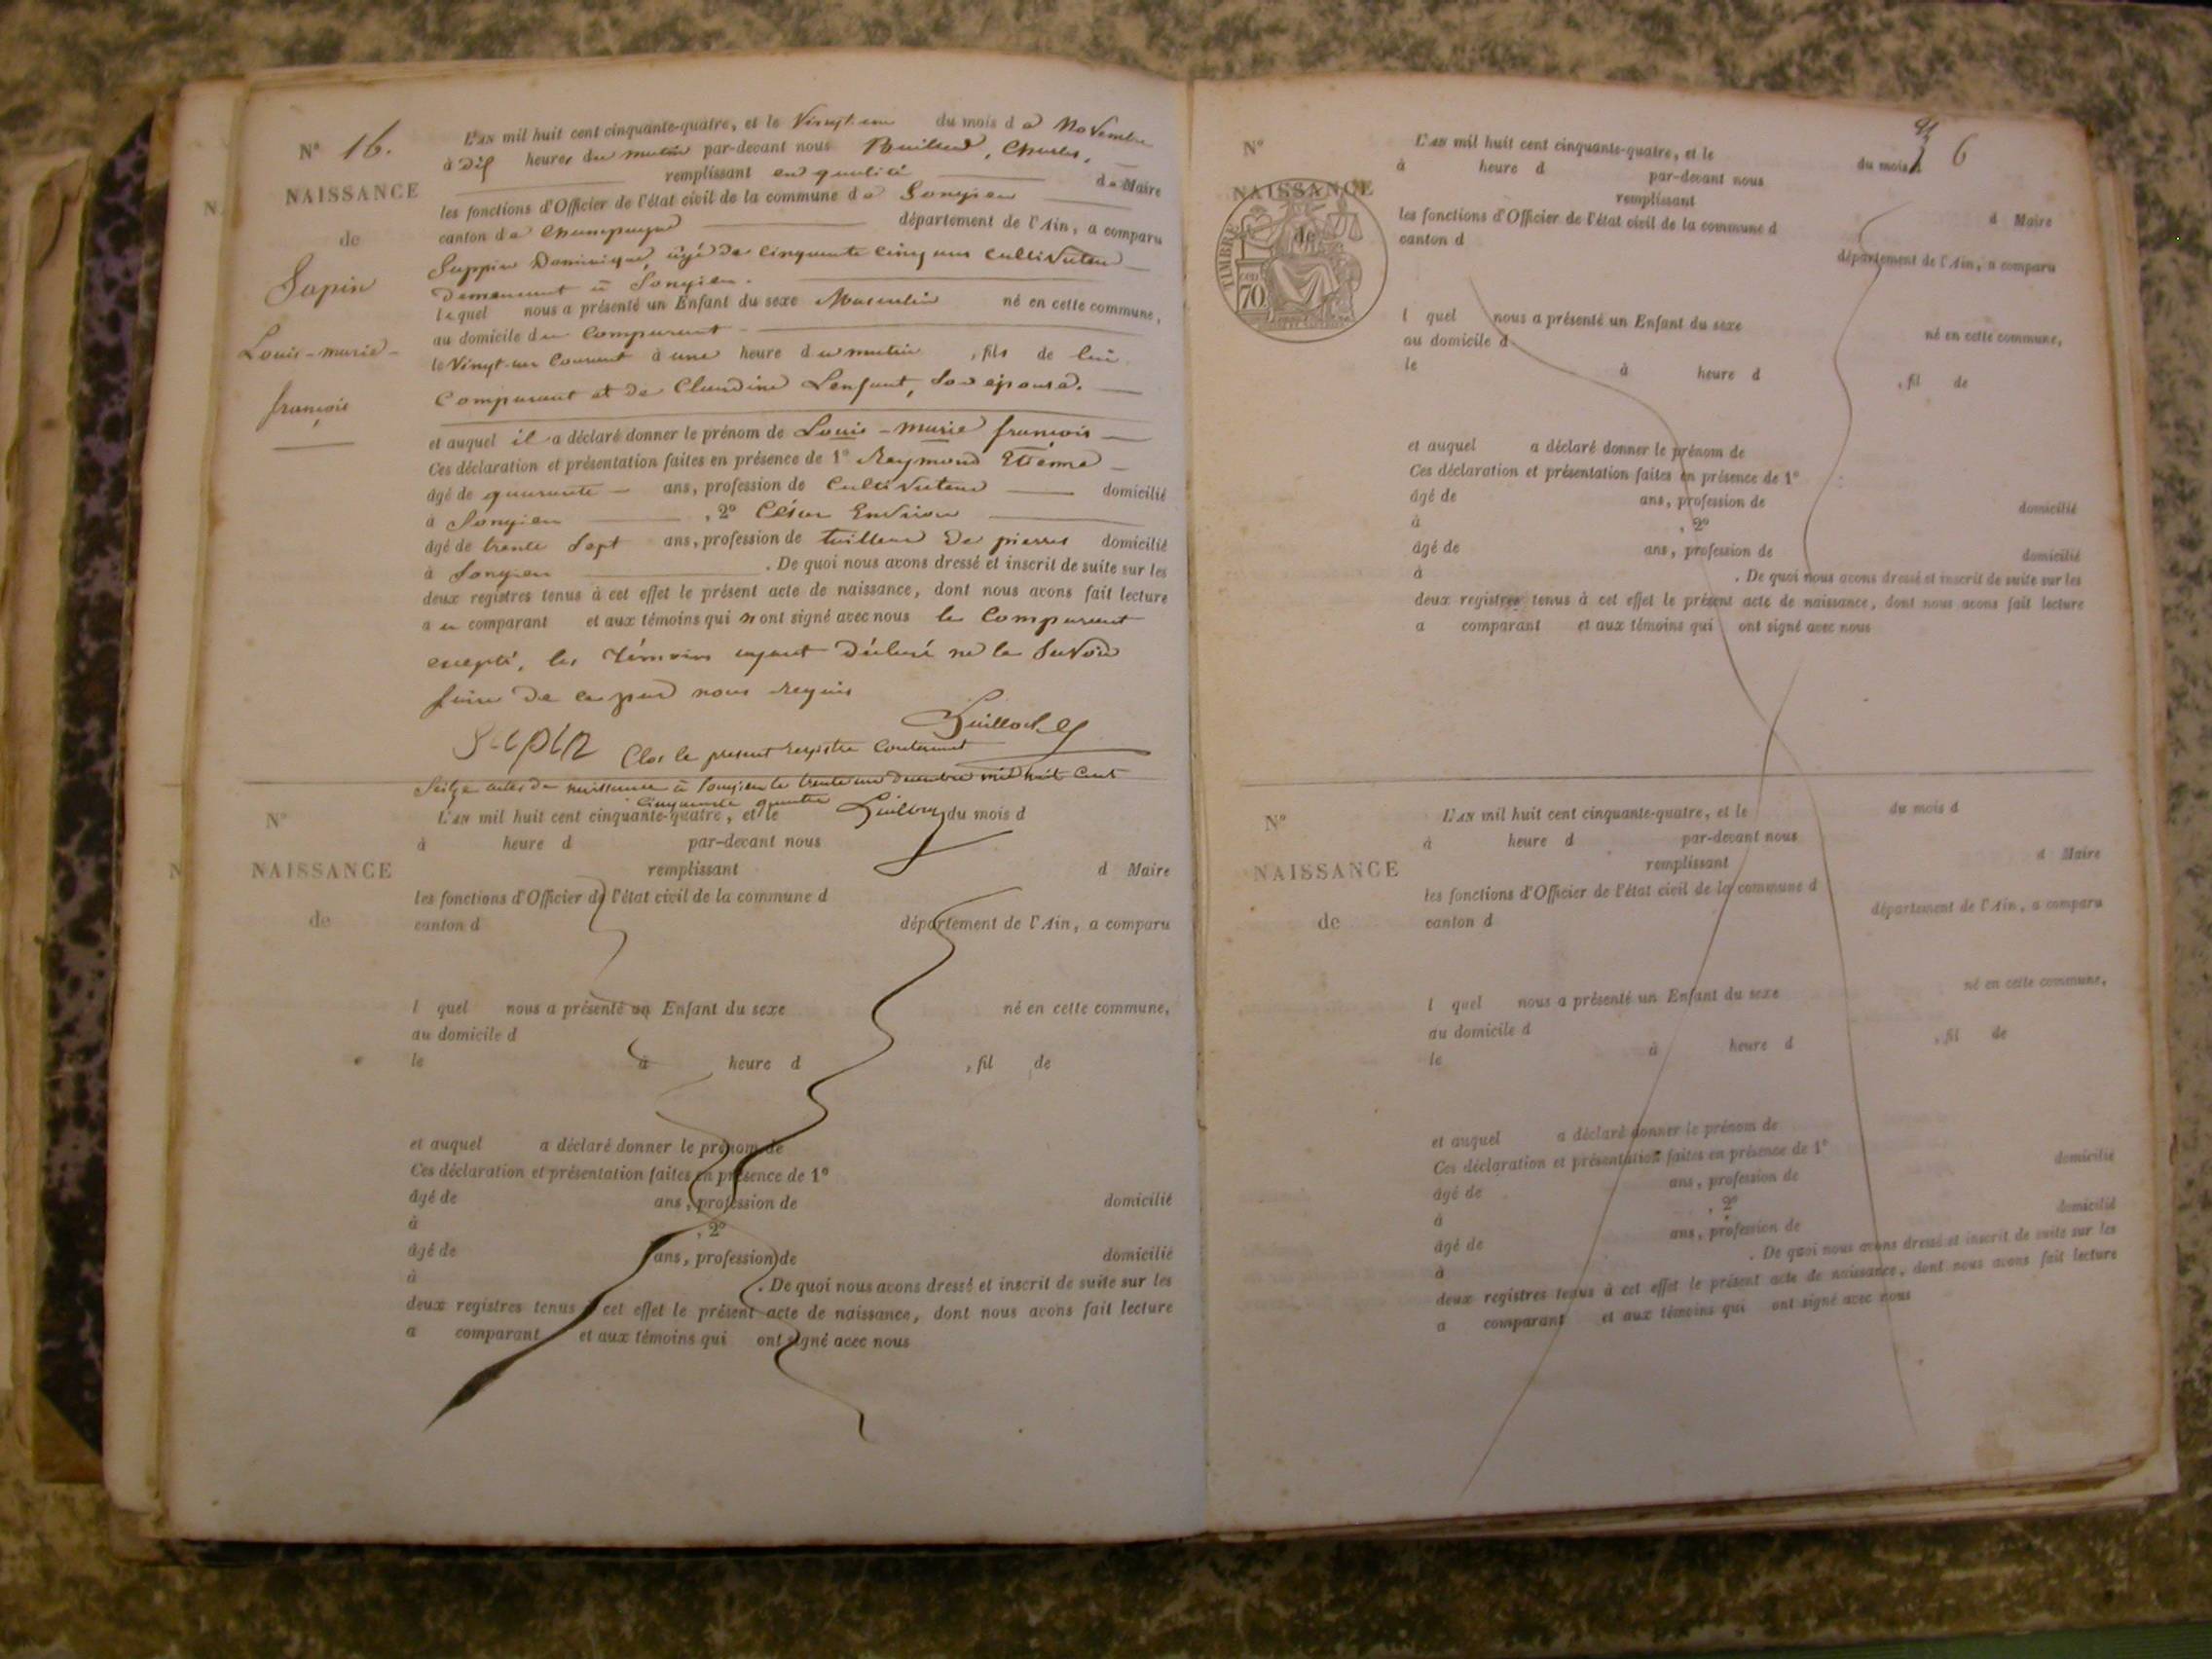 N° 16.
NAISSANCE
de
Sapin
Louis-marie-
françois
L'AN mil huit cent cinquante-quatre, et le Vingt-un du mois de Novembre
à dix heures du matin par-devant nous Charles,
remplissant en qualité de Maire
les fonctions d'Officier de l'état civil de la commune de Songieu
canton de Champagne département de l'Ain, a comparu
Sappin Dominique, âgé de cinquante cinq ans cultivateur
demeurant à Songieu.
lequel nous a présenté un Enfant du sexe Masculin né en cette commune,
au domicile du Comparant
le Vingt-un Courant à une heure du matin, fils de lui
Comparant et de Claudine Lenfant, son épouse.
et auquel il a déclaré donner le prénom de Louis-marie françois
Ces déclaration et présentation faites en présence de 1° Reymond Etienne
âgé de quarante ans, profession de Cultivateur domicilié
à Songieu, 2° César
âgé de trente Sept ans, profession de tailleur de pierres domicilié
à Songieu. De quoi nous avons dressé et inscrit de suite sur les
deux registres tenus à cet effet le présent acte de naissance, dont nous avons fait lecture
au comparant et aux témoins qui n ont signé avec nous le Comparant
excepté, les témoins ayant déclaré ne le Savoir
faire de ce par nous Requis
Sapin
Clos le present registre Contenant
Seize actes de naissance à Songieu le trente un decembre mil huit Cent
Cinquante quatre
N°
NAISSANCE
de
L'AN mil huit cent cinquante-quatre, et le du mois d
à heure d par-devant nous
remplissant d Maire
les fonctions d'Officier de l'état civil de la commune d
canton d département de l'Ain, a comparu
l quel nous a présenté un Enfant du sexe né en cette commune,
au domicile d
le à heure d , fil de
et auquel a déclaré donner le prénom de
Ces déclaration et présentation faites en présence de 1°
âgé de ans, profession de domicilié
à , 2°
âgé de ans, profession de domicilié
à . De quoi nous avons dressé et inscrit de suite sur les
deux registres tenus à cet effet le présent acte de naissance, dont nous avons fait lecture
a comparant et aux témoins qui ont signé avec nous
6
N°
NAISSANCE
de
TIMBRE
70
L'AN mil huit cent cinquante-quatre, et le du mois d
à heure d par-devant nous
remplissant d Maire
les fonctions d'Officier de l'état civil de la commune d
canton d département de l'Ain, a comparu
l quel nous a présenté un Enfant du sexe né en cette commune,
au domicile d
le à heure d , fil de
et auquel a déclaré donner le prénom de
Ces déclaration et présentation faites en présence de 1°
âgé de ans, profession de domicilié
à , 2°
âgé de ans, profession de domicilié
à . De quoi nous avons dressé et inscrit de suite sur les
deux registres tenus à cet effet le présent acte de naissance, dont nous avons fait lecture
a comparant et aux témoins qui ont signé avec nous
N°
NAISSANCE
de
L'AN mil huit cent cinquante-quatre, et le du mois d
à heure d par-devant nous
remplissant d Maire
les fonctions d'Officier de l'état civil de la commune d
canton d département de l'Ain, a comparu
l quel nous a présenté un Enfant du sexe né en cette commune,
au domicile d
le à heure d , fil de
et auquel a déclaré donner le prénom de
Ces déclaration et présentation faites en présence de 1°
âgé de ans, profession de domicilié
à , 2°
âgé de ans, profession de domicilié
à . De quoi nous avons dressé et inscrit de suite sur les
deux registres tenus à cet effet le présent acte de naissance, dont nous avons fait lecture
a comparant et aux témoins qui ont signé avec nous